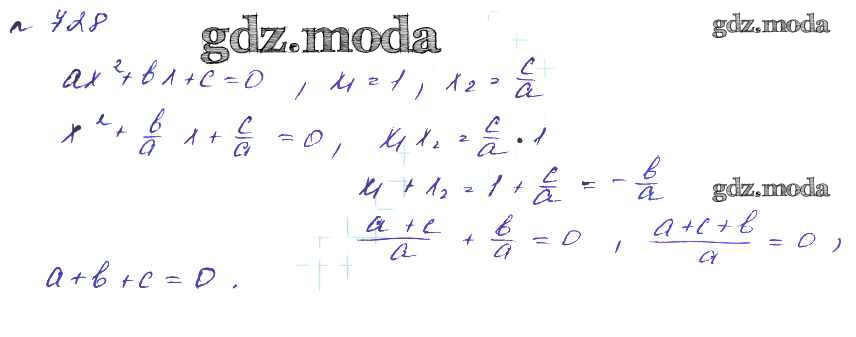 № 728
gdz.moda
gdz.moda
ax² + bx + c = 0, x₁ = 1, x₂ = c/a
x² + b/a x + c/a = 0, x₁x₂ = c/a · 1
x₁ + x₂ = 1 + c/a = - b/a
gdz.moda
(a + c)/a + b/a = 0, (a + c + b)/a = 0,
a + b + c = 0.